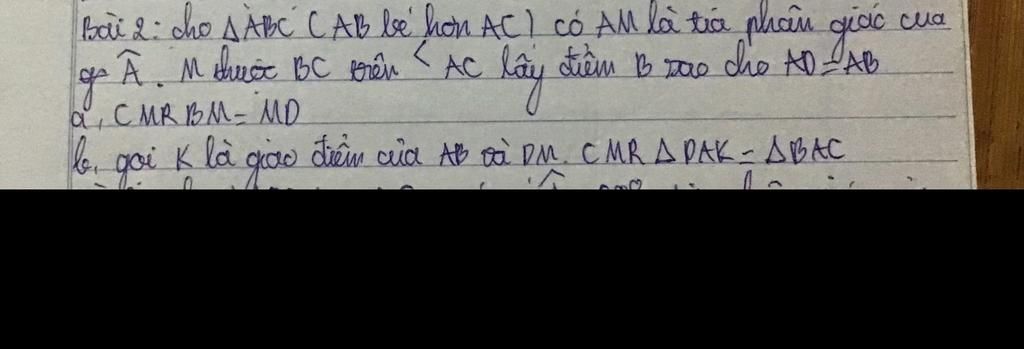 Bài 2: cho ΔABC (AB bé hơn AC) có AM là tia phân giác cua
Â. M thuộc BC trên < AC lấy điểm B sao cho AD=AB
a, CMR BM = MD
b, gọi K là giao điểm của AB và DM. CMR Δ DAK = ΔBAC